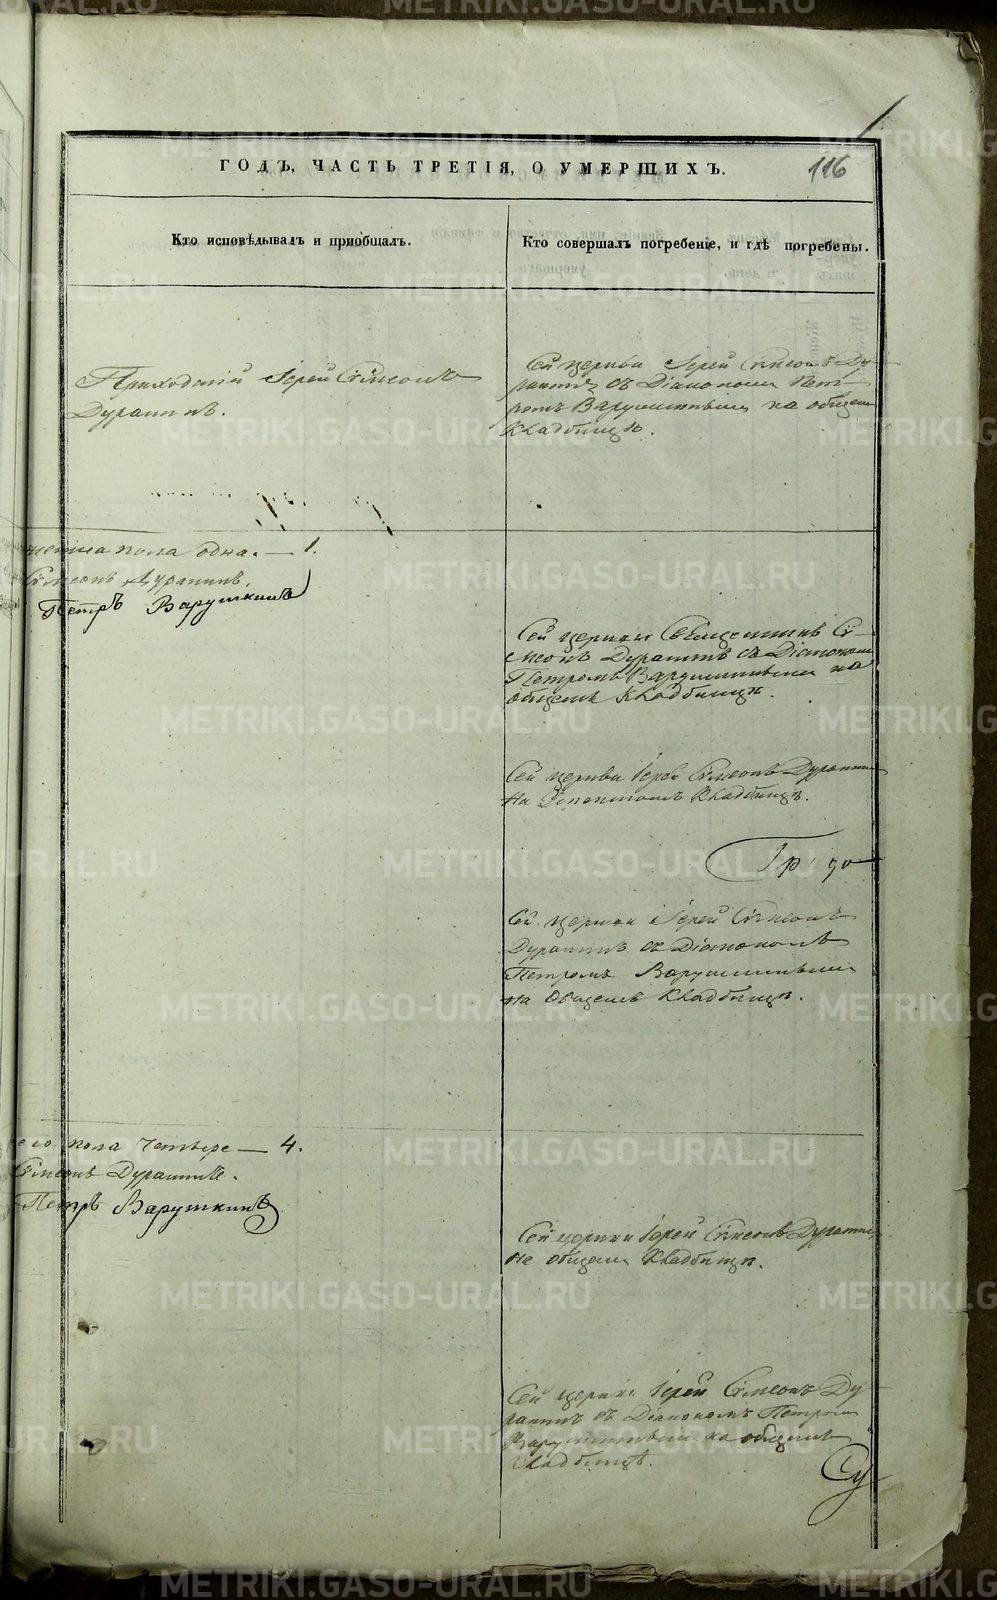 ГОДЪ, ЧАСТЬ ТРЕТІЯ, О УМЕРШИХЪ.
116
Кто исповѣдывалъ и приобщалъ.
Кто совершалъ погребеніе, и гдѣ погребены.
Приходскій Іерей Сѵмеонъ
Дурагинъ.
Сей церкви Іерей Сѵмеонъ Ду-
рагинъ съ Діакономъ Пет-
ромъ Варушкинымъ на общемъ
Кладбищѣ.
пола одна. — 1.
Сѵмеонъ Дурагинъ.
Петръ Варушкинъ
Сей церкви Священникъ Сѵ-
меонъ Дурагинъ съ Діакономъ
Петромъ Варушкинымъ на
общемъ Кладбищѣ.
Сей церкви Іерей Сѵмеонъ Дурагинъ
на Кладбищѣ.
Сей церкви Іерей Сѵмеонъ
Дурагинъ съ Діакономъ
Петромъ Варушкинымъ
на Общемъ Кладбищѣ.
пола четыре — 4.
Сѵмеонъ Дурагинъ.
Петръ Варушкинъ
Сей церкви Іерей Сѵмеонъ Дурагинъ
на общемъ Кладбищѣ.
Сей церкви Іерей Сѵмеонъ Ду-
рагинъ съ Діакономъ Петромъ
Варушкинымъ на общемъ
Кладбищѣ.
METRIKI.GASO-URAL.RU